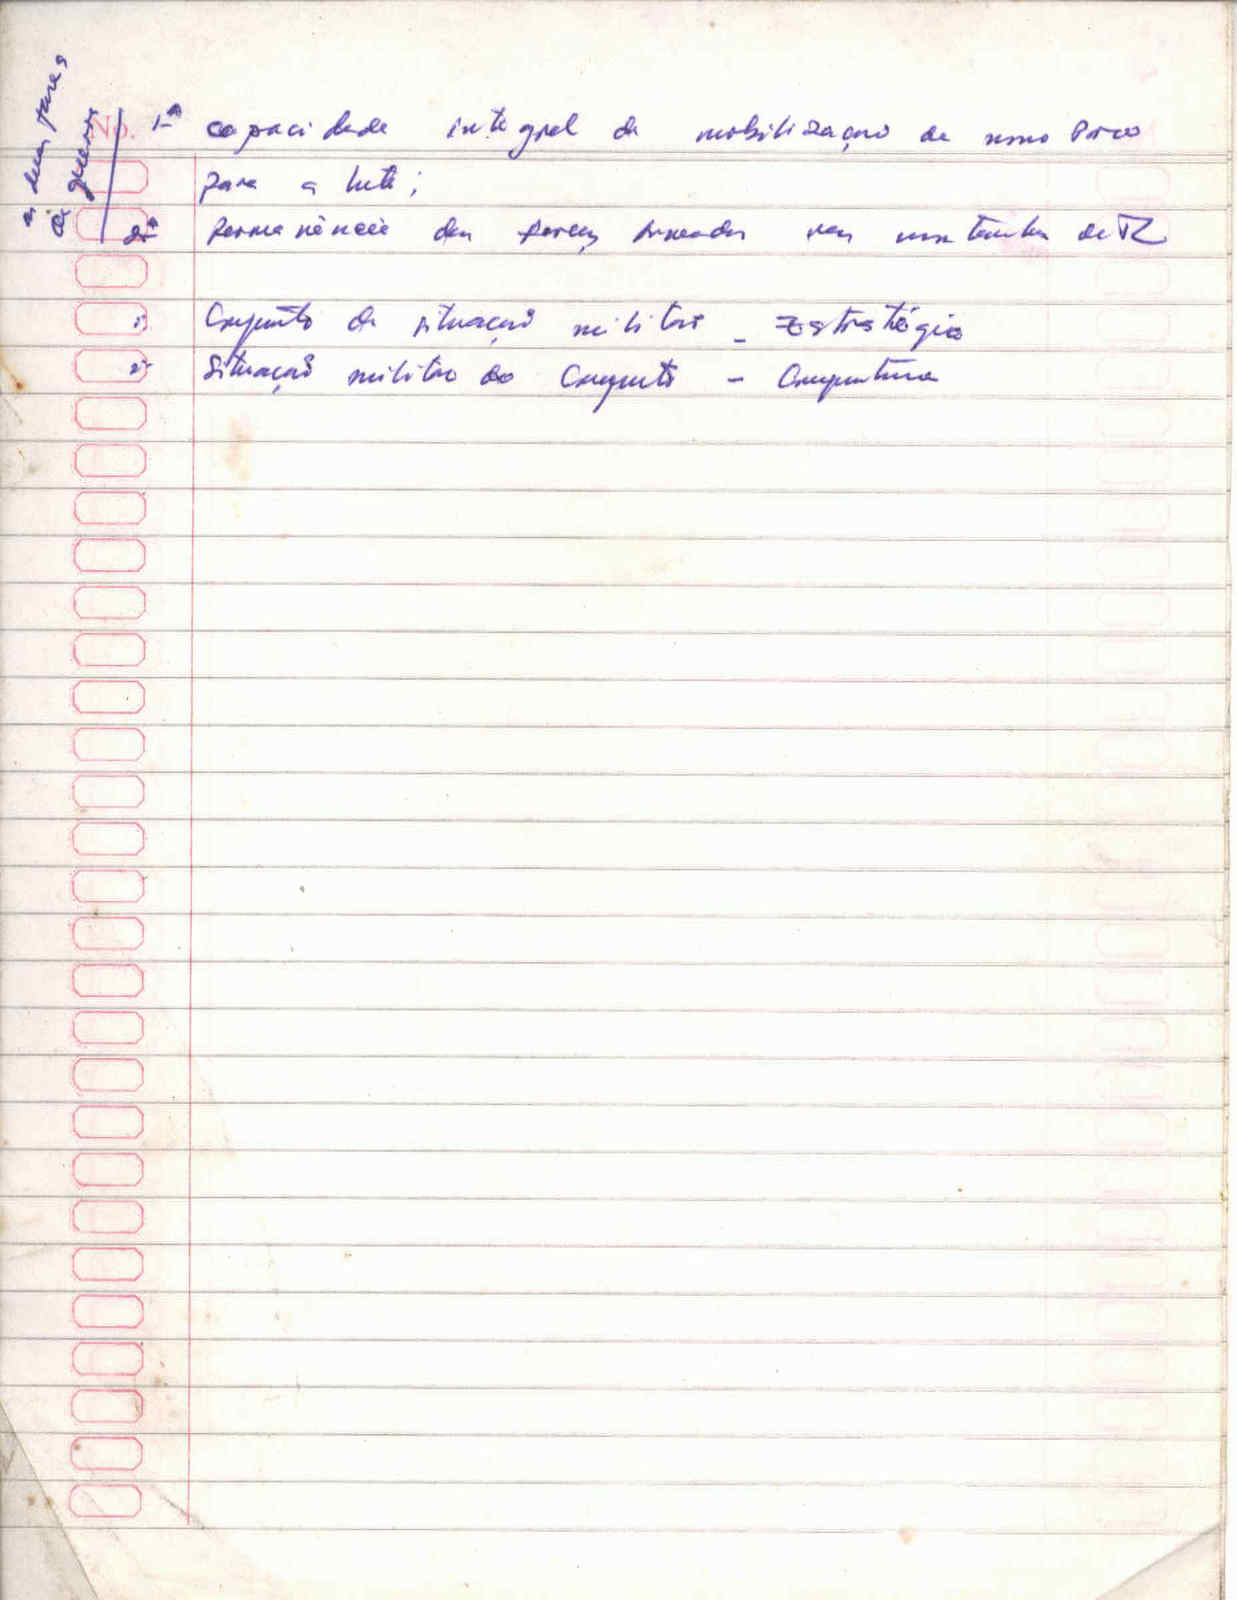 as duas fases
da guerra
No.
1ª capacidade integral de mobilização de nosso Povo
para a luta;
2ª Permanência das forças Armadas nas montanhas de TL
1) Conjunto da situação militar - Estratégia
2- Situação militar do Conjunto - Conjuntura